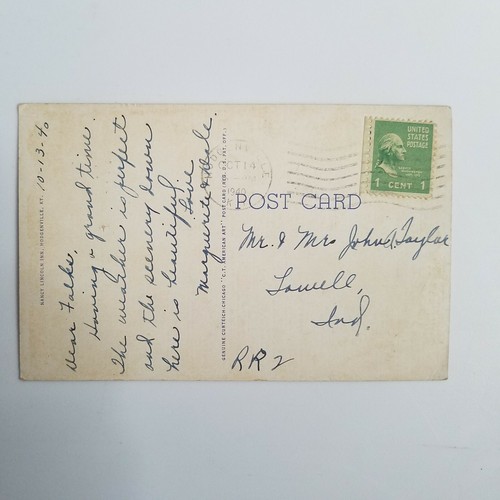 10-13-40
Dear Folks,
Having a grand time.
The weather is perfect
and the scenery down
here is beautiful.
Love
Marguerite & Dale.
NANCY LINCOLN INN, HODGENVILLE, KY.
GENUINE CURTEICH-CHICAGO "C.T. AMERICAN ART" POST CARD (REG. U.S. PAT. OFF.)
OCT 14
1940
UNITED
STATES
POSTAGE
1 CENT 1
POST CARD
Mr. & Mrs John Taylor
Lowell,
Ind.
RR2